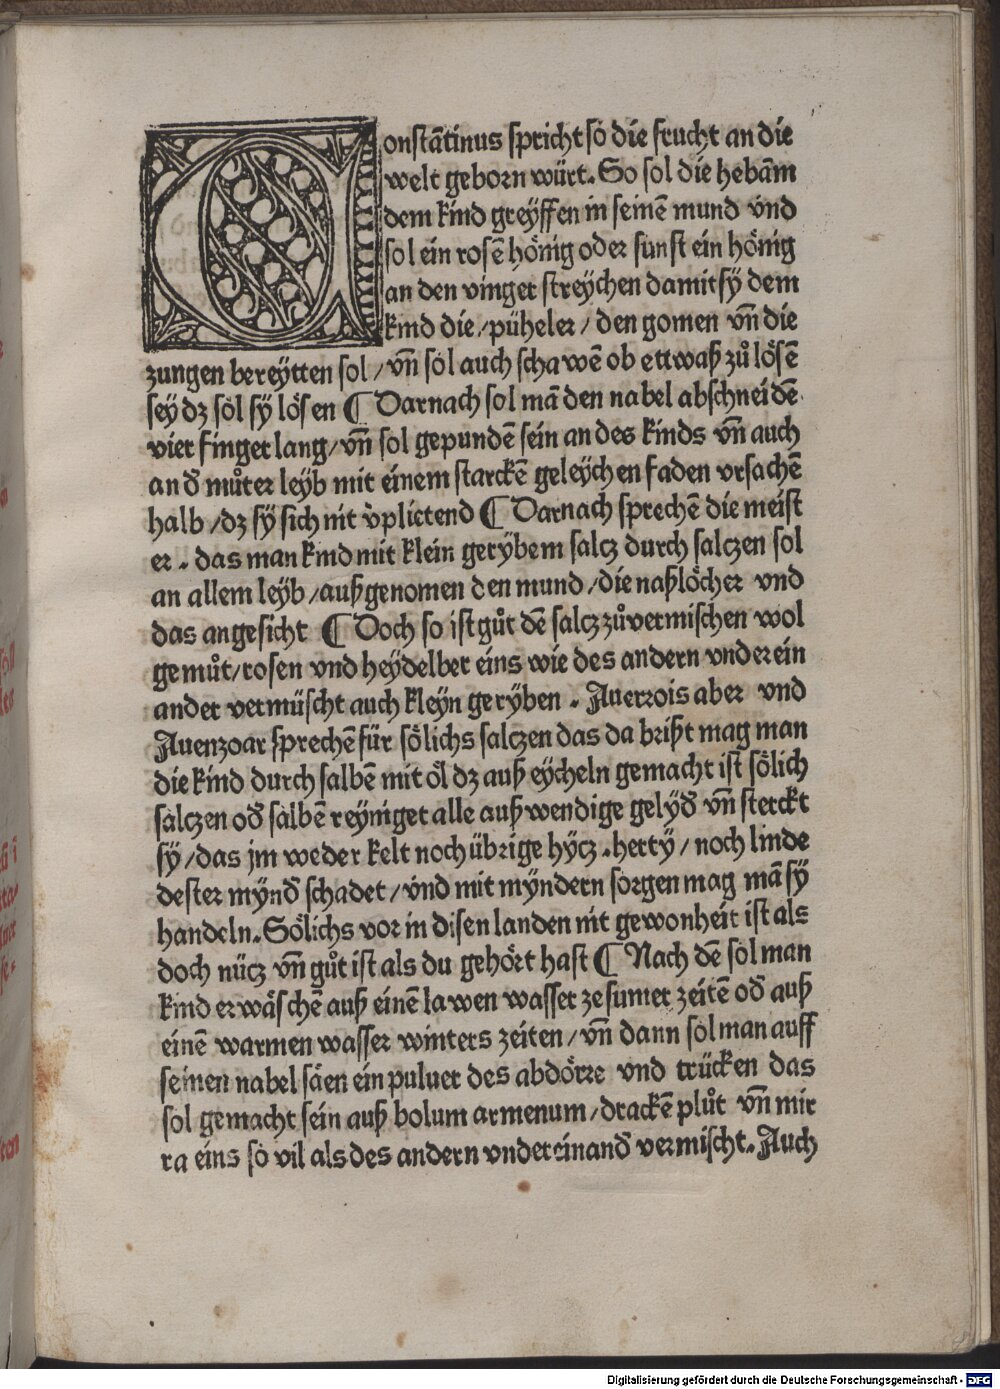 Constātinus spricht so die frucht an die
welt geborn würt. So sol die hebām
dem kind greÿffen in seinē mund vnd
sol ein rosē hönig oder sunst ein hönig
an den vinger streÿchen damit sÿ dem
kind die / püheler / den gomen vn̄ die
zungen bereÿtten sol / vn̄ sol auch schawē ob ettwaß zů lösē
seÿ dz sol sÿ lösen ¶ Darnach sol mā den nabel abschneidē
vier finger lang / vn̄ sol gepundē sein an des kinds vn̄ auch
an d̄ můter leÿb mit einem starckē geleÿchen faden vrsachē
halb / dz sÿ sich nit v̄plietend ¶ Darnach sprechē die meist
er . das man kind mit klein gerÿbem salcz durch salczen sol
an allem leÿb / außgenomen den mund / die naßlöcher vnd
das angesicht ¶ Doch so ist gůt dē salcz zůvermischen wol
gemůt / rosen vnd heÿdelber eins wie des andern vnderein
ander vermüscht auch kleÿn gerÿben . Auerrois aber vnd
Auenzoar sprechē für sölichs salczen das da brißt mag man
die kind durch salbē mit öl dz auß eÿcheln gemacht ist sölich
salczen od̄ salbē reÿniget alle außwendige gelÿd̄ vn̄ sterckt
sÿ / das jm weder kelt noch übrige hÿcz . hertÿ / noch linde
dester mÿnd̄ schadet / vnd mit mÿndern sorgen mag mā sÿ
handeln. Sölichs vor in disen landen nit gewonheit ist als
doch nücz vn̄ gůt ist als du gehört hast ¶ Nach dē sol man
kind erwäschē auß einē lawen wasser ze sumer zeitē od̄ auß
einē warmen wasser winters zeiten / vn̄ dann sol man auff
seinen nabel säen ein puluer des abdörre vnd trücken das
sol gemacht sein auß bolum armenum / drackē plůt vn̄ mir
ra eins so vil als des andern vndereinand̄ vermischt. Auch
Digitalisierung gefördert durch die Deutsche Forschungsgemeinschaft - DFG